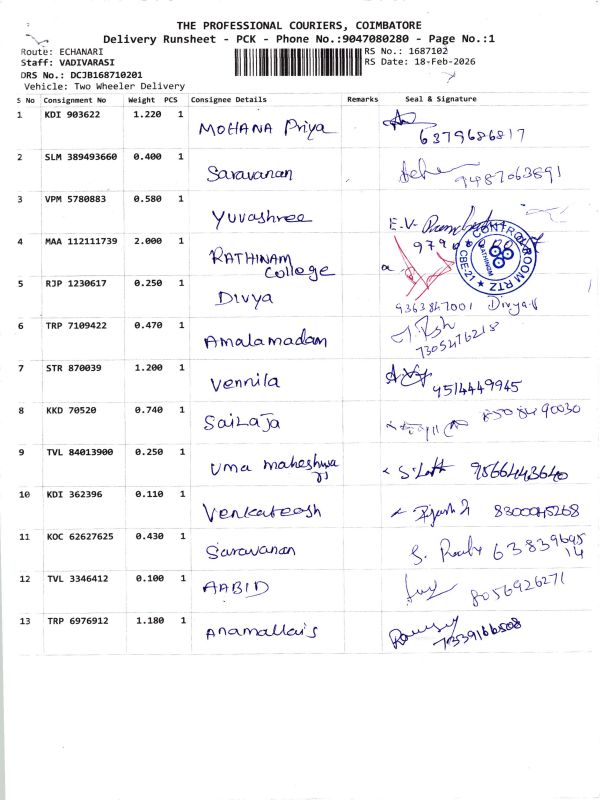 THE PROFESSIONAL COURIERS, COIMBATORE
Delivery Runsheet - PCK - Phone No.:9047080280 - Page No.:1
Route: ECHANARI RS No.: 1687102
Staff: VADIVARASI RS Date: 18-Feb-2026
DRS No.: DCJB168710201
Vehicle: Two Wheeler Delivery
S No Consignment No Weight PCS Consignee Details Remarks Seal & Signature
1 KDI 903622 1.220 1 MOHANA Priya 6379686817
2 SLM 389493660 0.400 1 Saravanan 9487063891
3 VPM 5780883 0.580 1 Yuvashree E.V.
4 MAA 112111739 2.000 1 RATHINAM College
CONTROL ROOM RTZ CBE-21
5 RJP 1230617 0.250 1 Divya 9363847001 Divya.V
6 TRP 7109422 0.470 1 Amalamadam 7305476218
7 STR 870039 1.200 1 Vennila 9514449945
8 KKD 70520 0.740 1 Sailaja 8508490030
9 TVL 84013900 0.250 1 Uma maheshwari 9566443640
10 KDI 362396 0.110 1 Venkateesh 8300045268
11 KOC 62627625 0.430 1 Saravanan 6383969514
12 TVL 3346412 0.100 1 AABID 8056926271
13 TRP 6976912 1.180 1 Anamallais